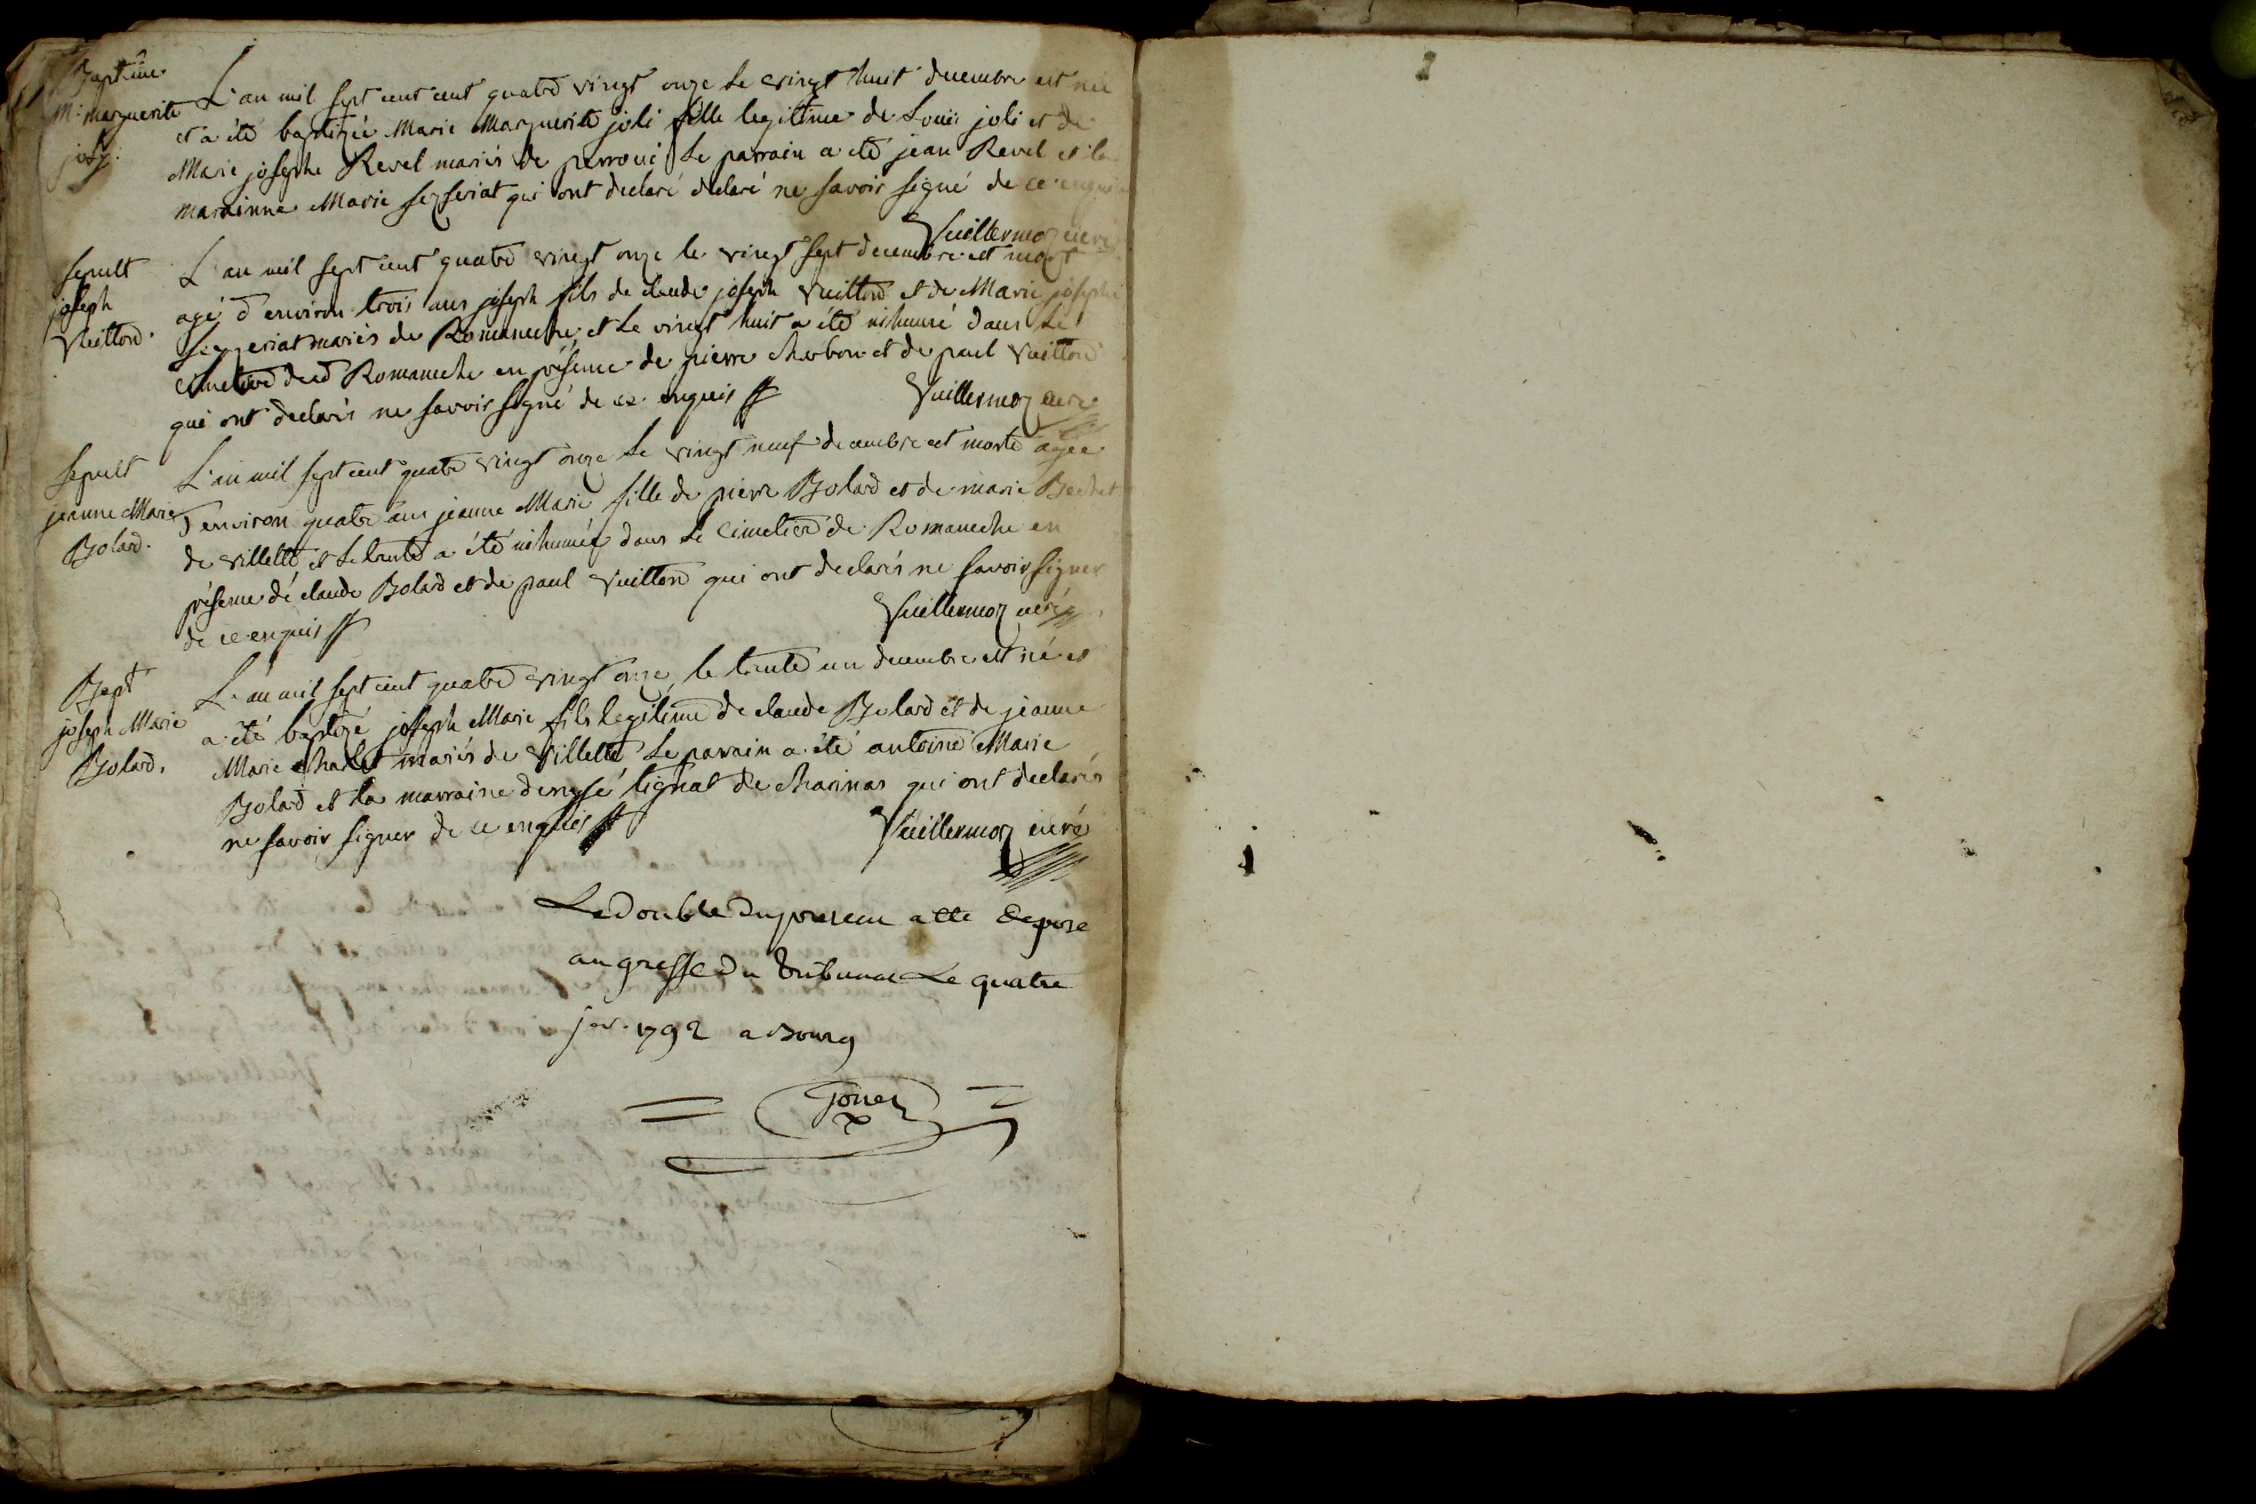 Baptême
M: marguerite
joly.
L'an mil sept cent cent quatre vingt onze le vingt huit decembre est née
et a été baptizée Marie Marguerite joli fille legitime de Louis joli et de
Marie josephe Revel mariés de perroui Le parrain a été jean Revel et la
marainne Marie sezseriat qui ont declaré declaré ne savoir signé de ce enquis
Vuillermoz curé
sepult
joseph
Vuitton.
L'an mil sept cent quatre vingt onze le vingt sept decembre est mort
agé d'environ trois ans joseph fils de claude joseph Vuitton et de Marie josephe
sezeriat mariés de Romaneche, et le vingt huit a été inhumé dans le
cimetiere dud Romaneche en présence de pierre charbon et de paul Vuitton
qui ont declarés ne savoir signé de ce enquis
Vuillermoz curé
sepult
jeanne Marie
Bolard.
L'an mil sept cent quatre vingt onze le vingt neuf decembre est morte agée
d'environ quatre ans jeanne Marie fille de pierre Bolard et de marie
de villette et le trente a été inhumée dans le cimetiere de Romaneche en
présence de claude Bolard et de paul Vuitton qui ont declarés ne savoir signer
de ce enquis
Vuillermoz curé
Bapt
joseph Marie
Bolard.
L'an mil sept cent quatre vingt onze, le trente un decembre est né et
a été baptizé joseph Marie fils legitime de claude Bolard et de jeanne
Marie mariés de Villette Le parain a été antoine Marie
Bolard et la marraine denyse tignat de charinas qui ont declarés
ne savoir signer de ce enquis
Vuillermoz curé
Le double du present a ete depose
au greffe du tribunal Le quatre
jer. 1792 a Bourg